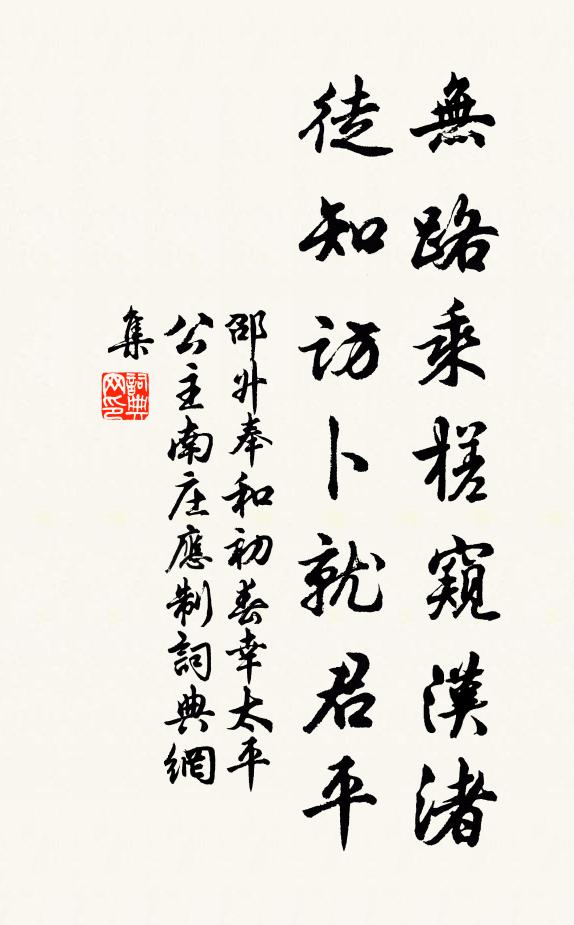 無路乘槎窺漢渚
徒知訪卜就君平
邵升奉和初春幸太平
公主南庄應制詞典網
集
詞典
网印